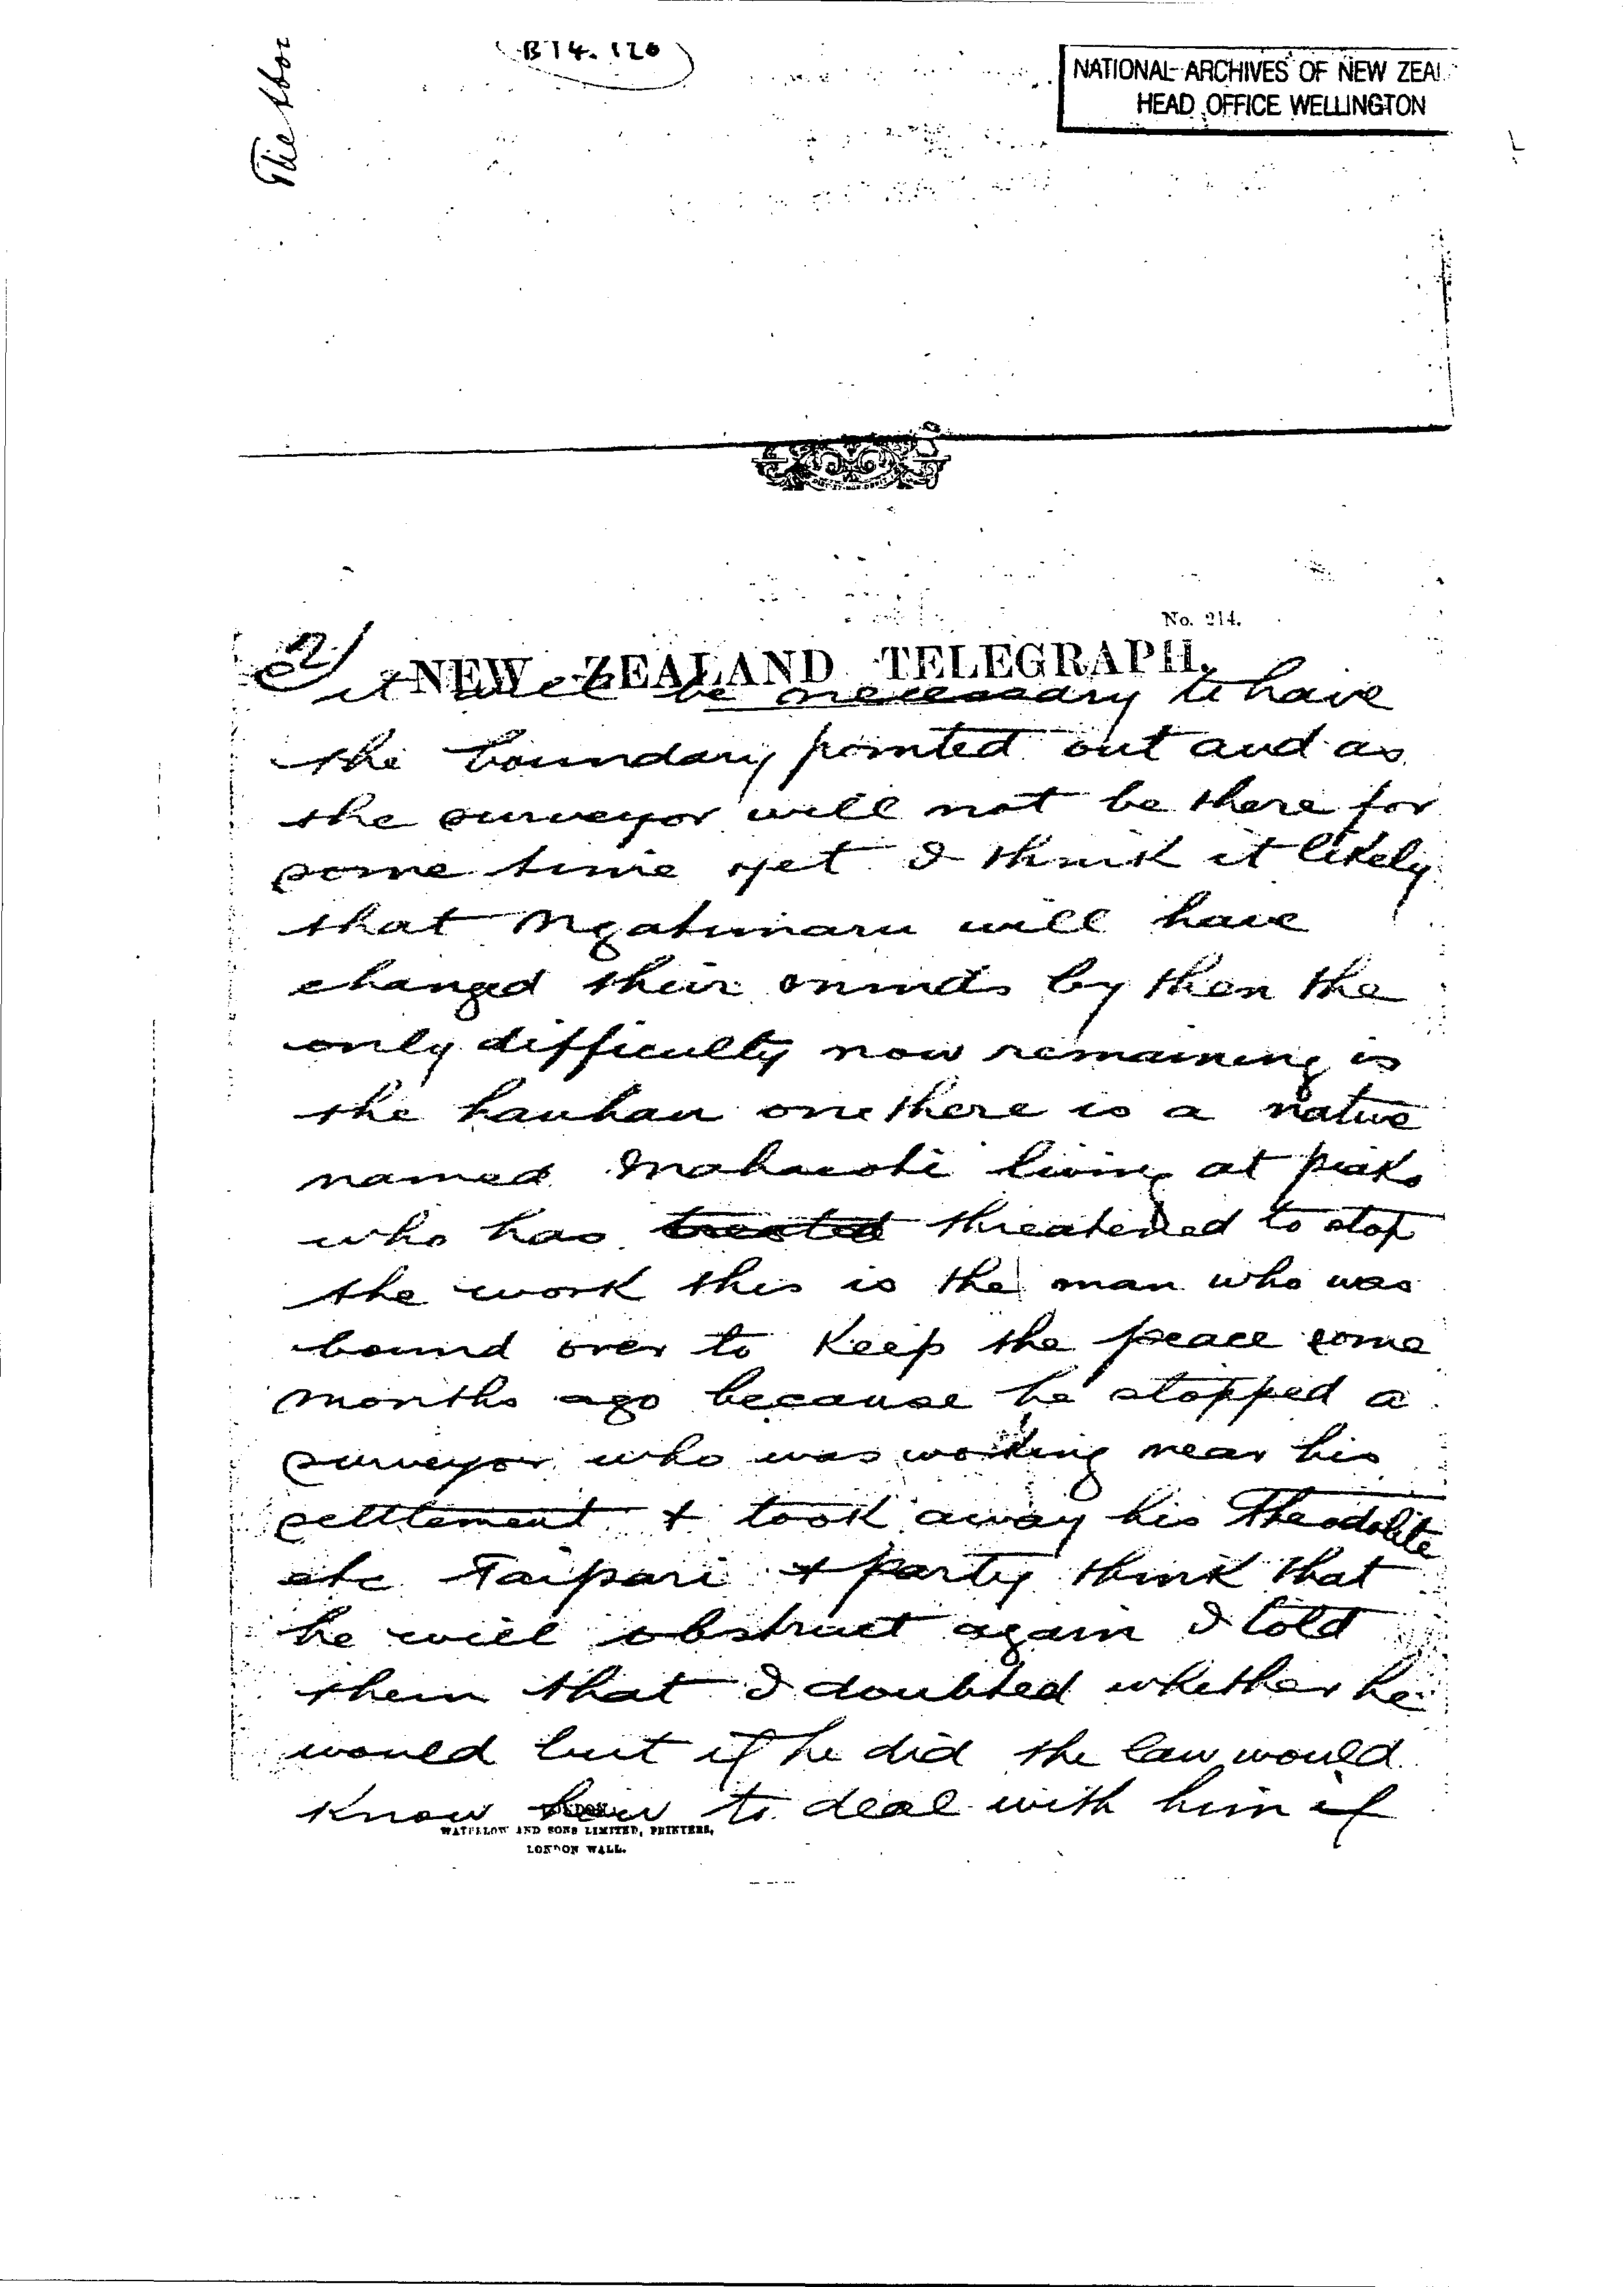 B14.126
NATIONAL ARCHIVES OF NEW ZEAL
HEAD OFFICE WELLINGTON
No. 214.
2/
NEW ZEALAND TELEGRAPH.
it will be necessary to have
the boundary pointed out and as
the surveyor will not be there for
some time yet I think it likely
that Ngatimaru will have
changed their minds by then the
only difficulty now remaining is
the hauhau one there is a native
named living at piako
who has treated threatened to stop
the work this is the man who was
bound over to Keep the peace some
months ago because he stopped a
surveyor who was working near his
settlement & took away his Theodolite
etc Taipari & party think that
he will obstruct again I told
them that I doubted whether he
would but if he did the law would
Know how to deal with him if
LONDON
WATERLOW AND SONS LIMITED, PRINTERS,
LONDON WALL.